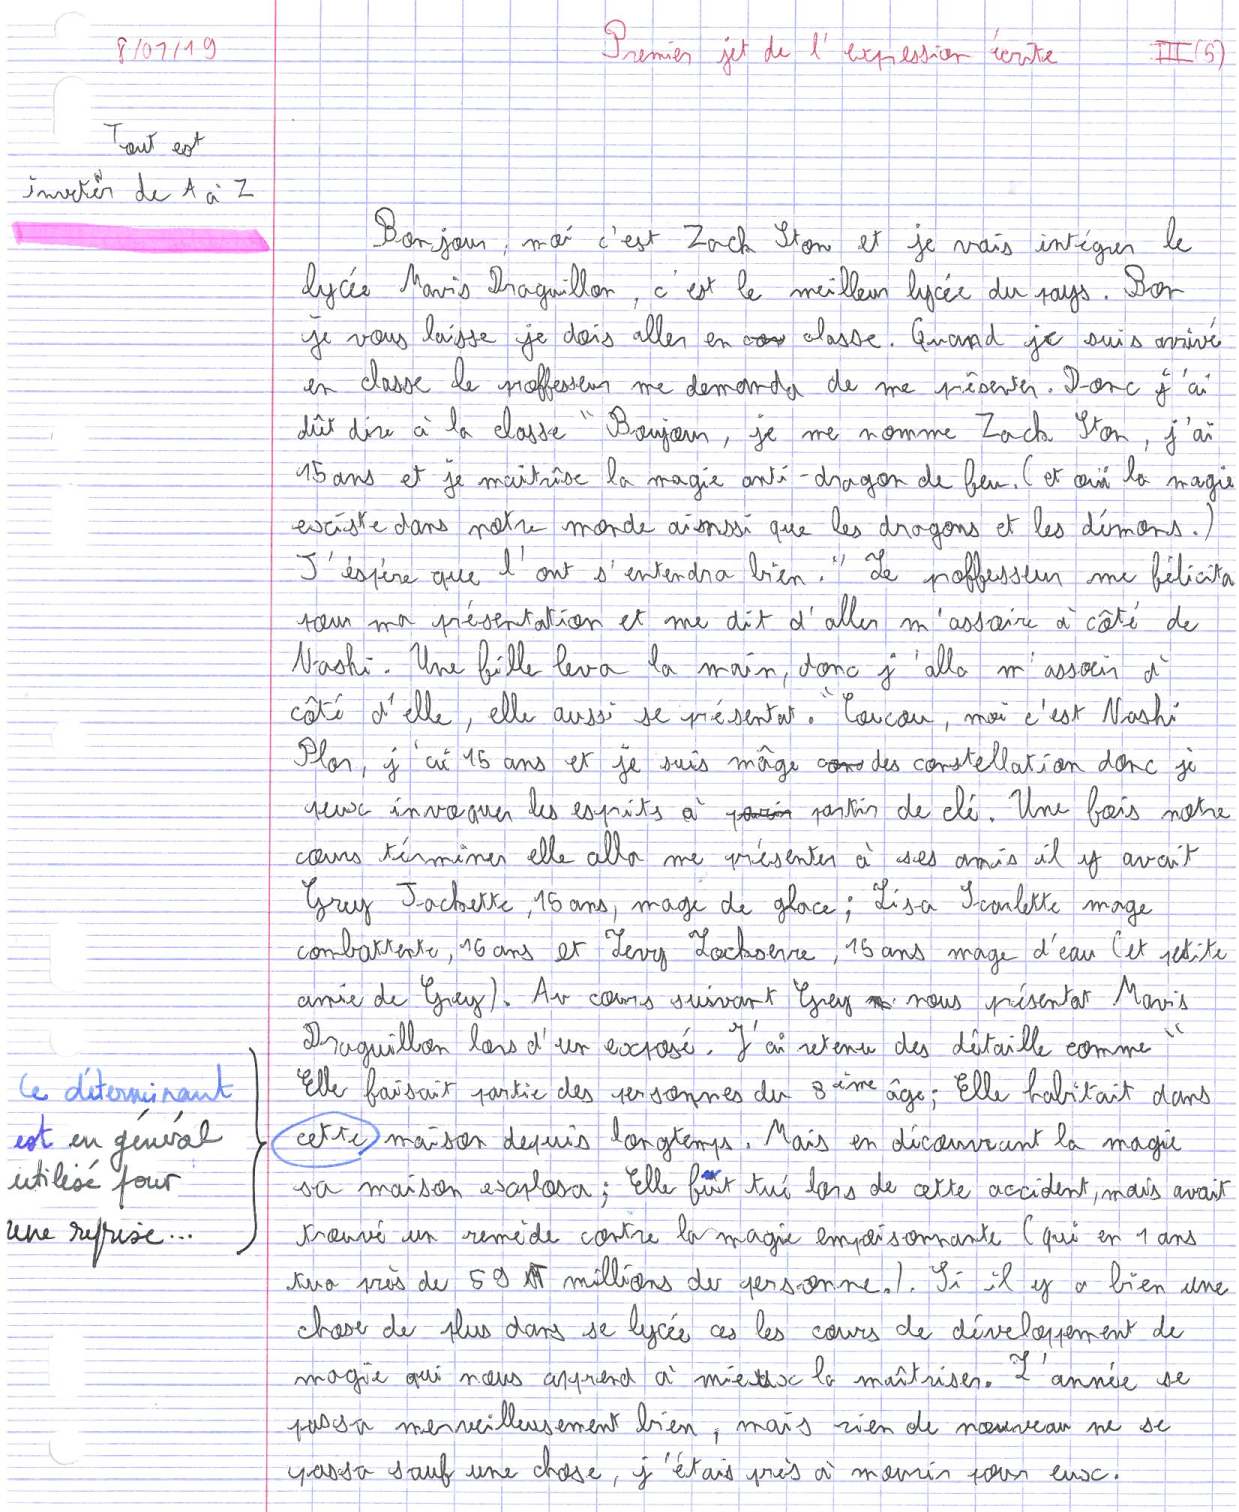 8/01/19
Premier jet de l'expression écrite III(5)
Tout est
inventer de A à Z
Bonjour, moi c'est Zach Ston et je vais intégrer le
lycée Mavis Draguillon, c'est le meilleur lycée du pays. Bon
je vous laisse je dois aller en classe. Quand je suis arrivé
en classe le proffesseur me demanda de me présenter. Donc j'ai
dût dire à la classe "Bonjour, je me nomme Zach Ston, j'ai
15 ans et je maitrîse la magie anti-dragon de feu. (et oui la magie
existe dans notre monde ainssi que les dragons et les démons.)
J'éspère que l'ont s'entendra bien." Le proffesseur me félicita
pour ma présentation et me dit d'aller m'assoire à côté de
Nashi. Une fille leva la main, donc j'alla m'assoir à
côté d'elle, elle aussi se présentat. "Coucou, moi c'est Nashi
Plar, j'ai 15 ans et je suis mâge des constellation donc je
peux invoquer les esprits à partir de clé. Une fois notre
cours términer elle alla me présenter à ses amis il y avait
Grey Jachette, 15 ans, mage de glace; Lisa Scarlette mage
combattente, 16 ans et Levy Lockserre, 15 ans mage d'eau (et petite
amie de Grey). Au cours suivant Grey nous présentat Mavis
Draguillon lors d'un exposé. J'ai retenu des détaille comme "
Elle faisait partie des personnes du 3 ième âge; Elle habitait dans
Ce déterminant
est en général
utilisé pour
une reprise...
cette maison depuis longtemps. Mais en découvrant la magie
sa maison explosa; Elle fut tué lors de cette accident, mais avait
trouvé un remède contre la magie empoisonnante (qui en 1 ans
tua près de 59 millions de personne.). Si il y a bien une
chose de plus dans se lycée ces les cours de développement de
magie qui nous apprend à mieux la maîtriser. L'année se
passa merveilleusement bien, mais rien de nouveau ne se
passa sauf une chose, j'étais près à mourir pour eux.